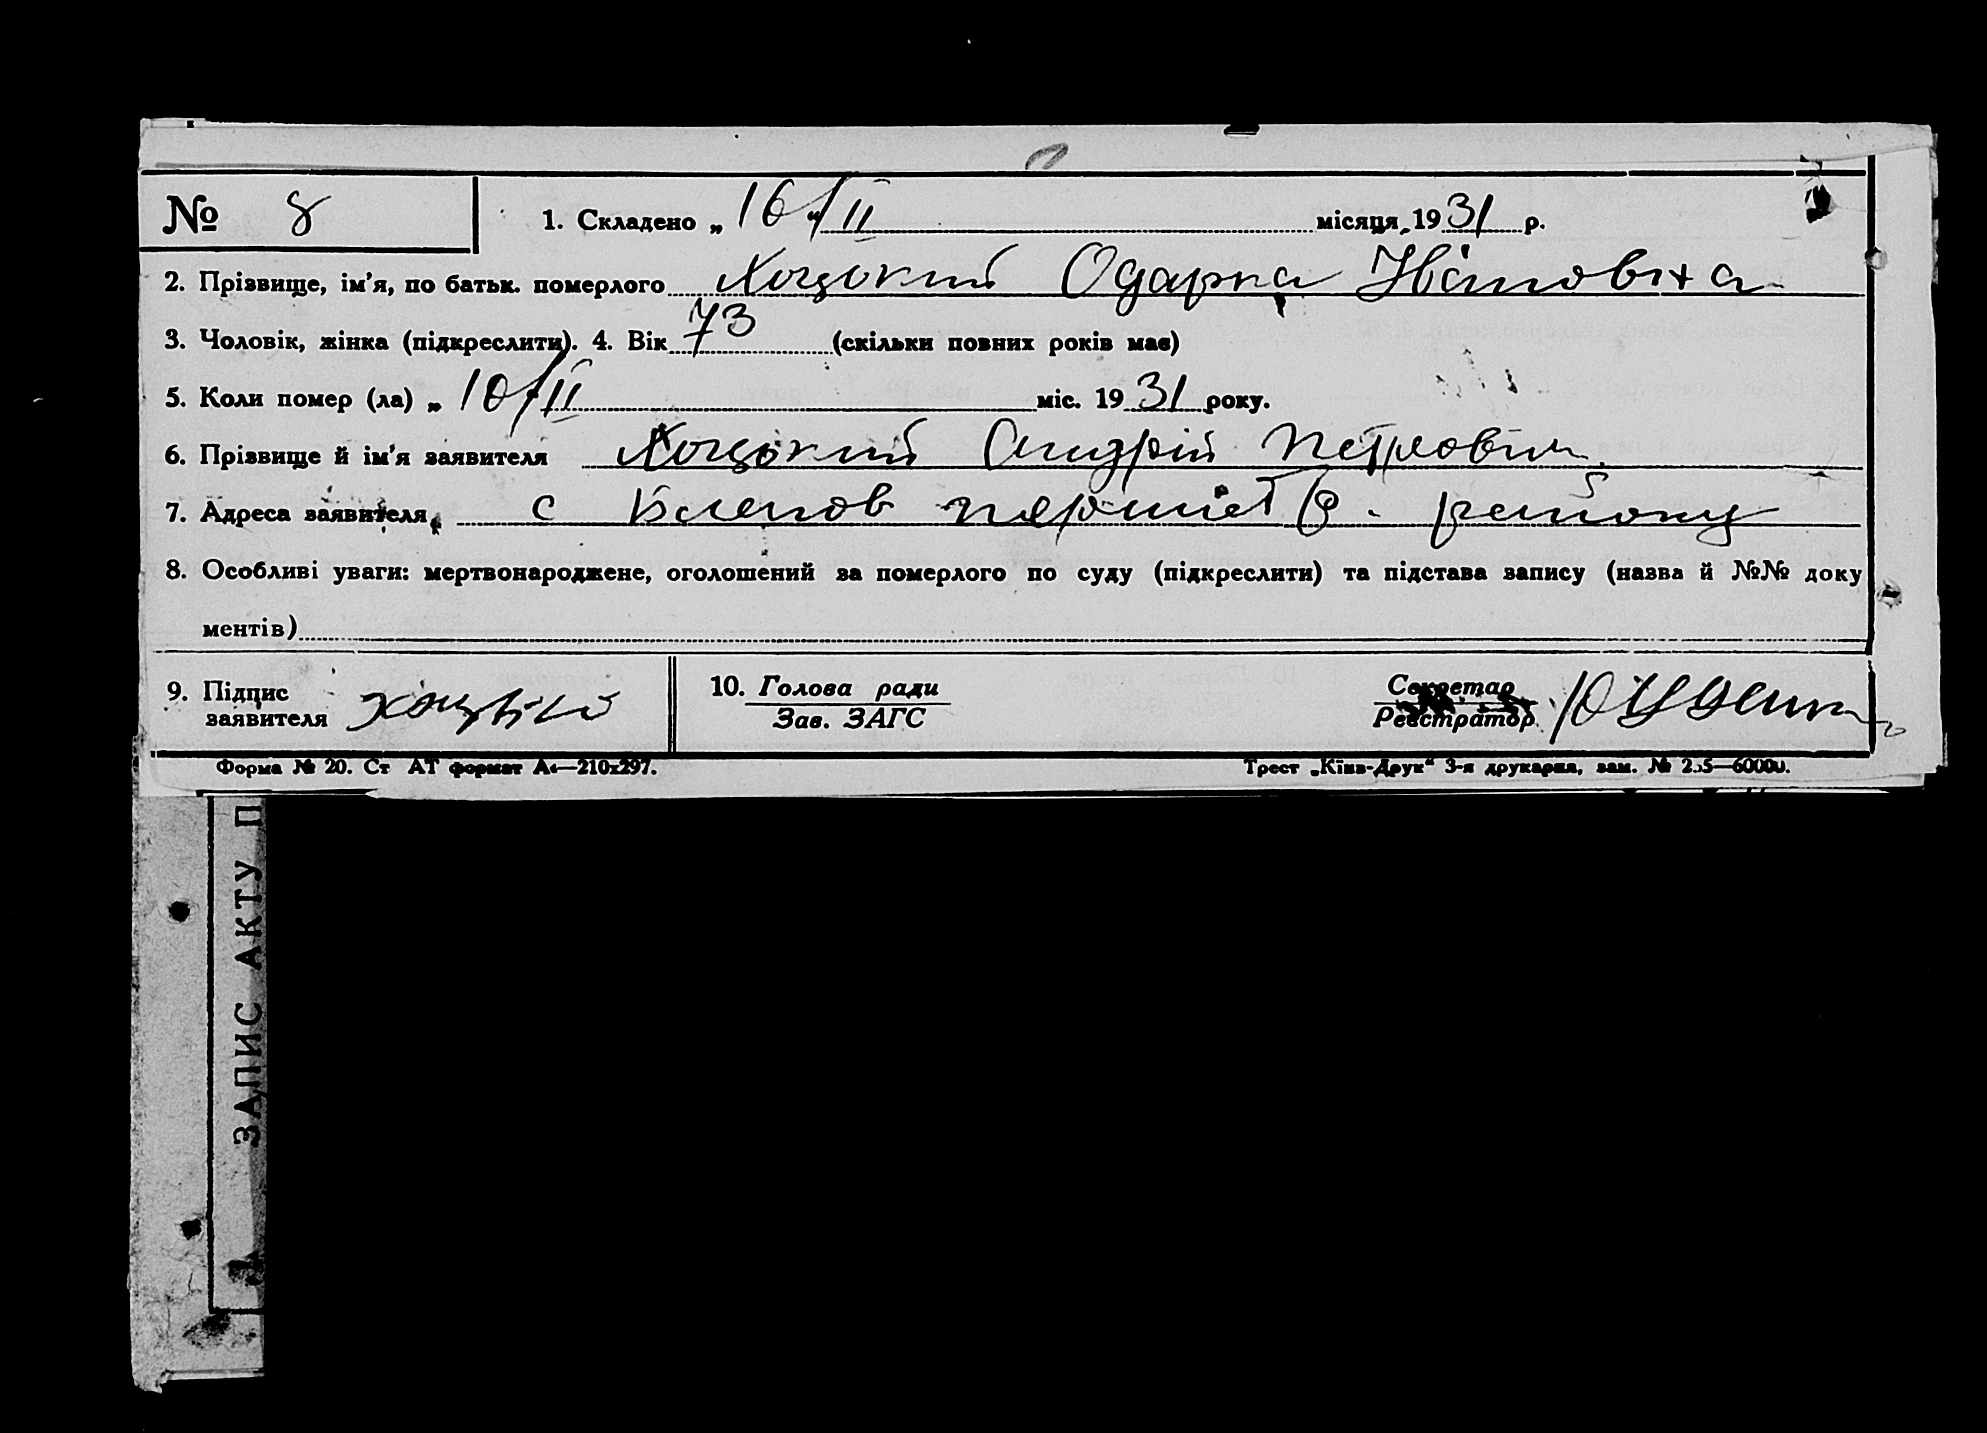 № 8 1. Складено „ 16/II " місяця 1931 р.
2. Прізвище, ім'я, по батьк. померлого Хоцький Одарка Івановна
3. Чоловік, жінка (підкреслити). 4. Вік 73 (скільки повних років має)
5. Коли помер (ла) „ 10/II міс. 1931 року.
6. Прізвище й ім'я заявителя Хоцький Андрій Петрович
7. Адреса заявителя с району
8. Особливі уваги: мертвонароджене, оголошений за померлого по суду (підкреслити) та підстава запису (назва й №№ доку
ментів)
9. Підпис заявителя 10. Голова ради Зав. ЗАГС Секретар Реєстратор
Форма № 20. Ст АТ формат А4—210х297. Трест „Київ-Друк" 3-я друкарня, зам. № 255—60000.
ЗАПИС АКТУ П